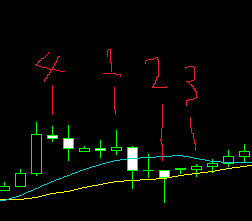 4 1 2 3